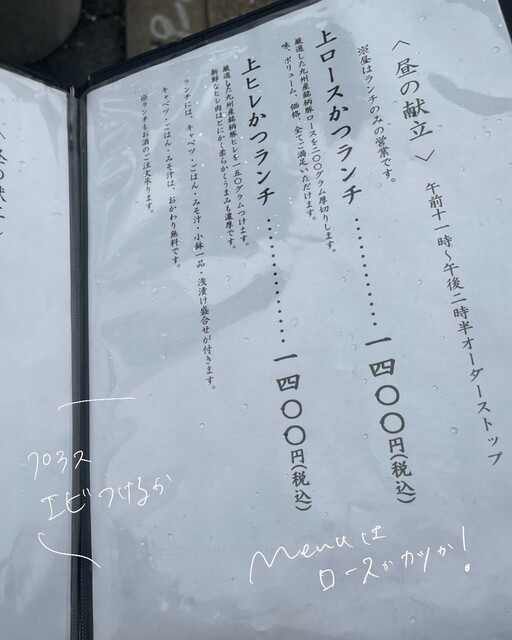 〈昼の献立〉
午前十一時～午後二時半オーダーストップ
※昼はランチのみの営業です。
上ロースかつランチ…………一四〇〇円(税込)
厳選した九州産銘柄豚ロースを二〇〇グラム厚切りします。
味、ボリューム、価格、全てご満足いただけます。
上ヒレかつランチ…………一四〇〇円(税込)
厳選した九州産銘柄豚ヒレを一五〇グラムつけます。
新鮮なヒレ肉はとにかく柔らかくうまみも濃厚です。
ランチには、キャベツ・ごはん・みそ汁・小鉢一品・浅漬け盛合せが付きます。
キャベツ・ごはん・みそ汁は、おかわり無料です。
※ランチもお酒のご注文承ります。
〈昼の献立
エビつけるか
Menuは
ロースかカツか!